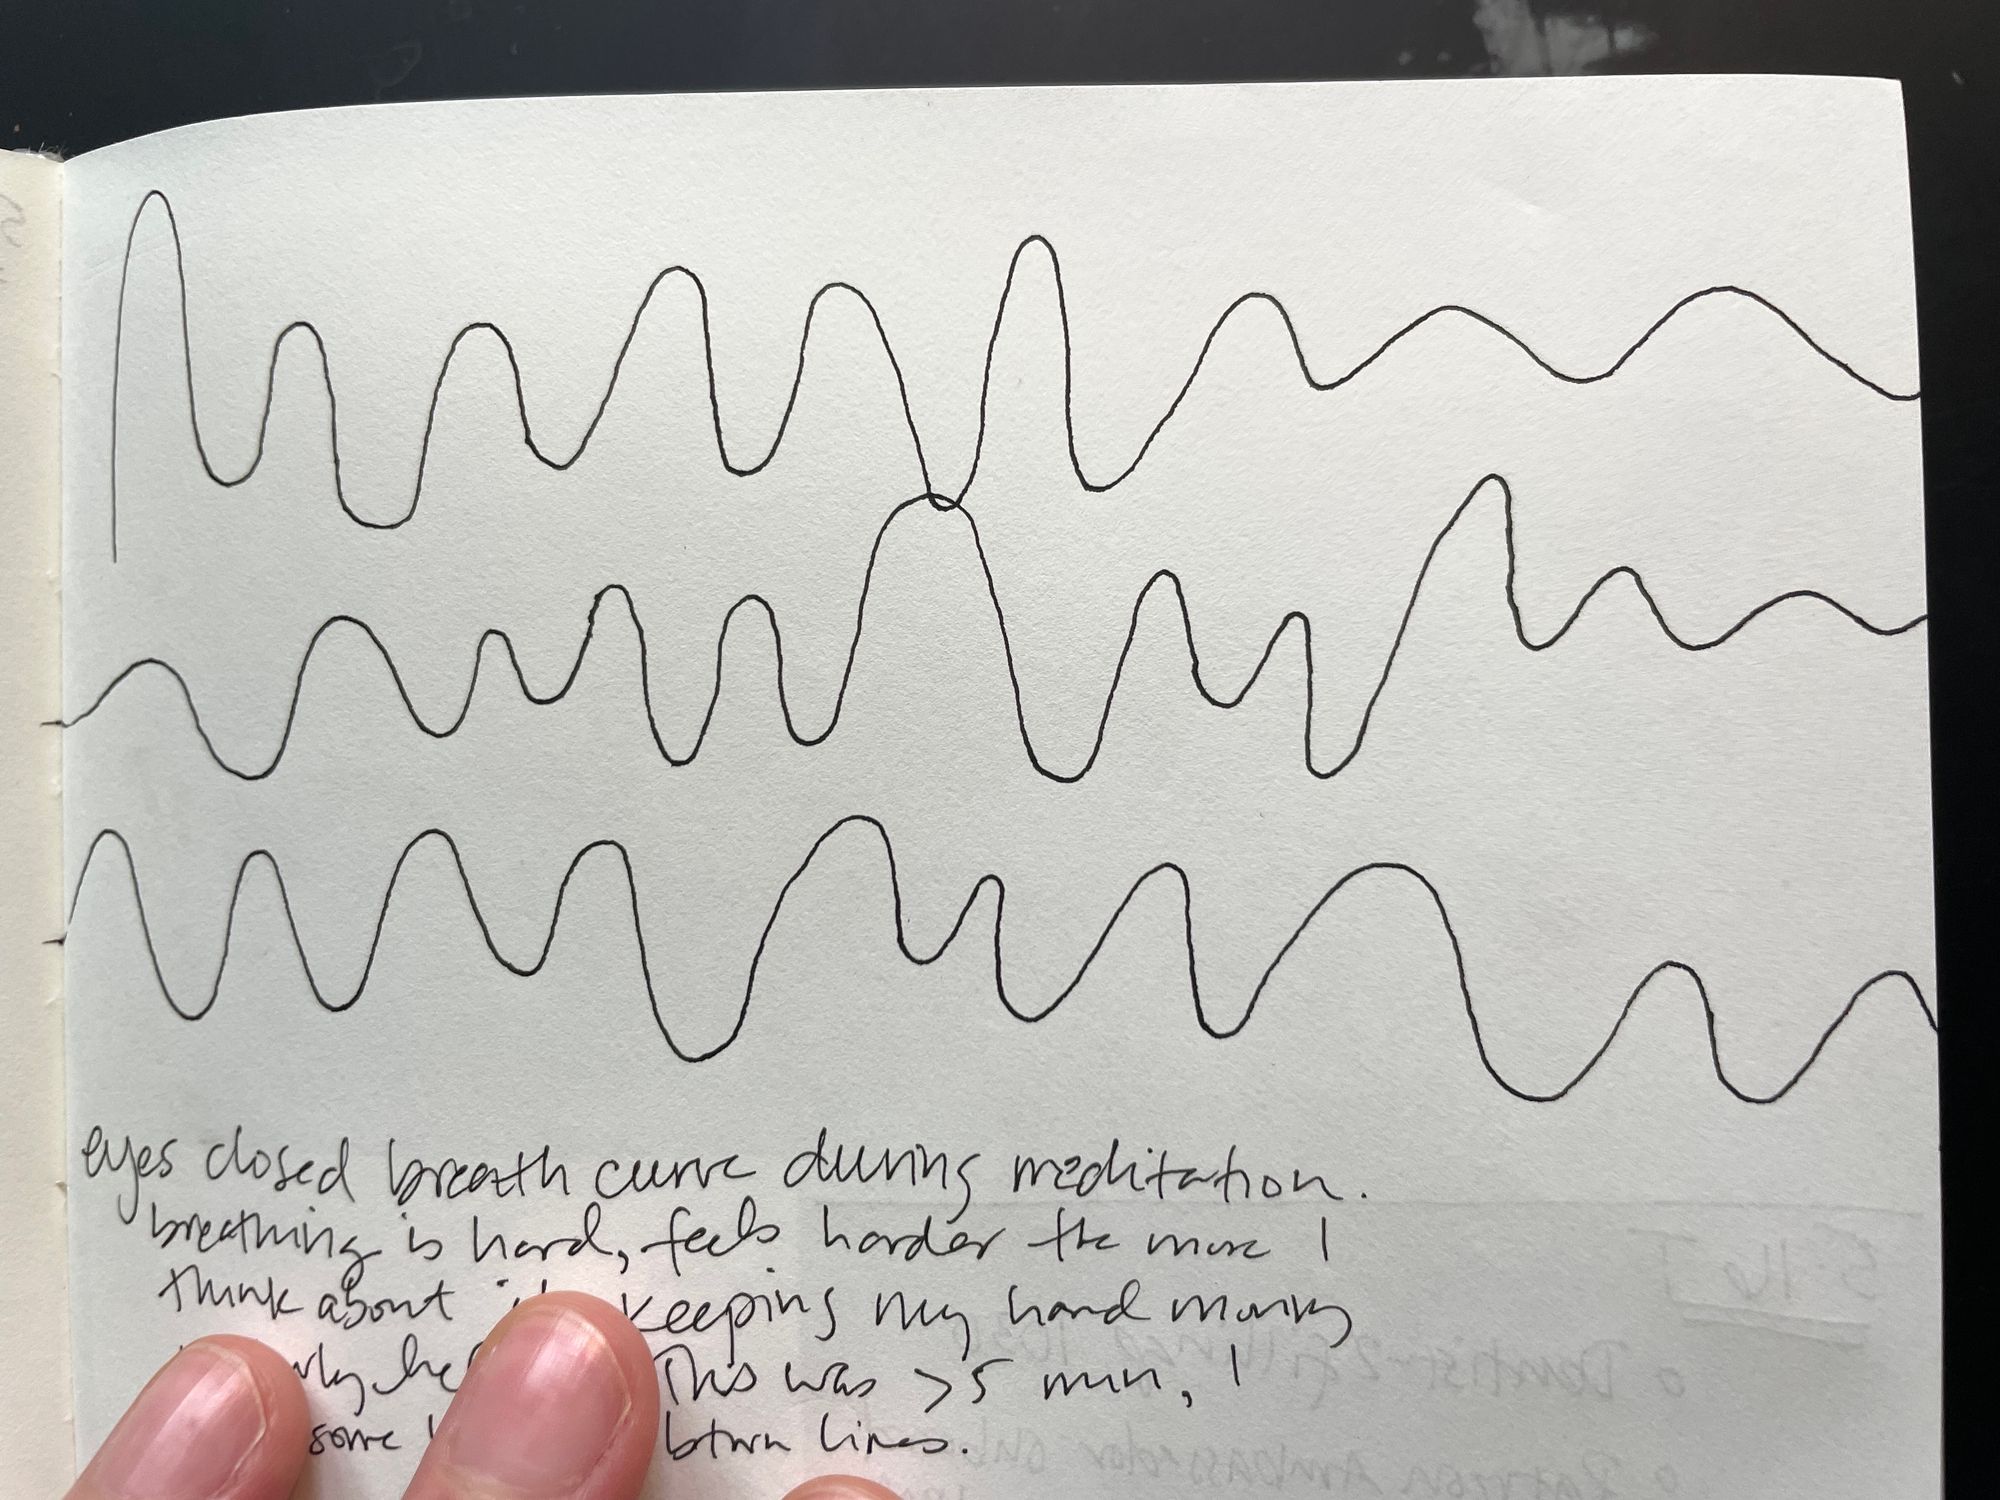 eyes closed breath curve during meditation.
breathing is hard, feels harder the more I
think about keeping my hand moving
This was >5 min, I
some btwn lines.